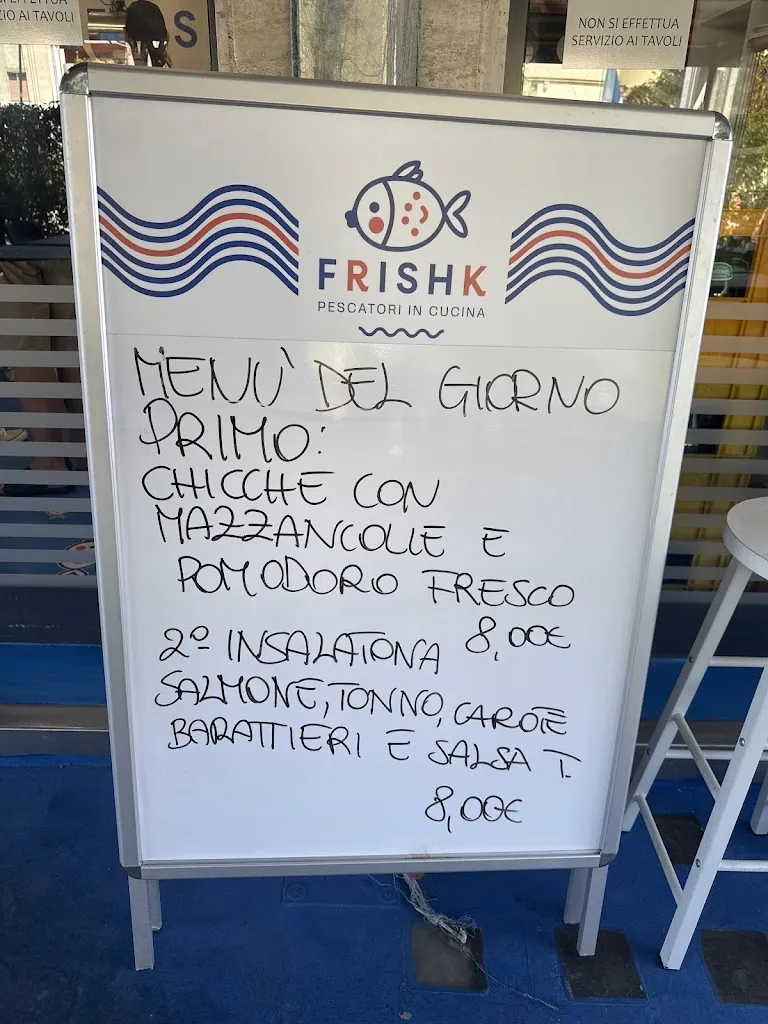 ZIO AI TAVOLI
S
NON SI EFFETTUA
SERVIZIO AI TAVOLI
FRISHK
PESCATORI IN CUCINA
MENÙ DEL GIORNO
PRIMO:
CHICCHE CON
MAZZANCOLLE E
POMODORO FRESCO
8,00€
2º INSALATONA
SALMONE, TONNO, CAROTE
BARATTIERI E SALSA T.
8,00€